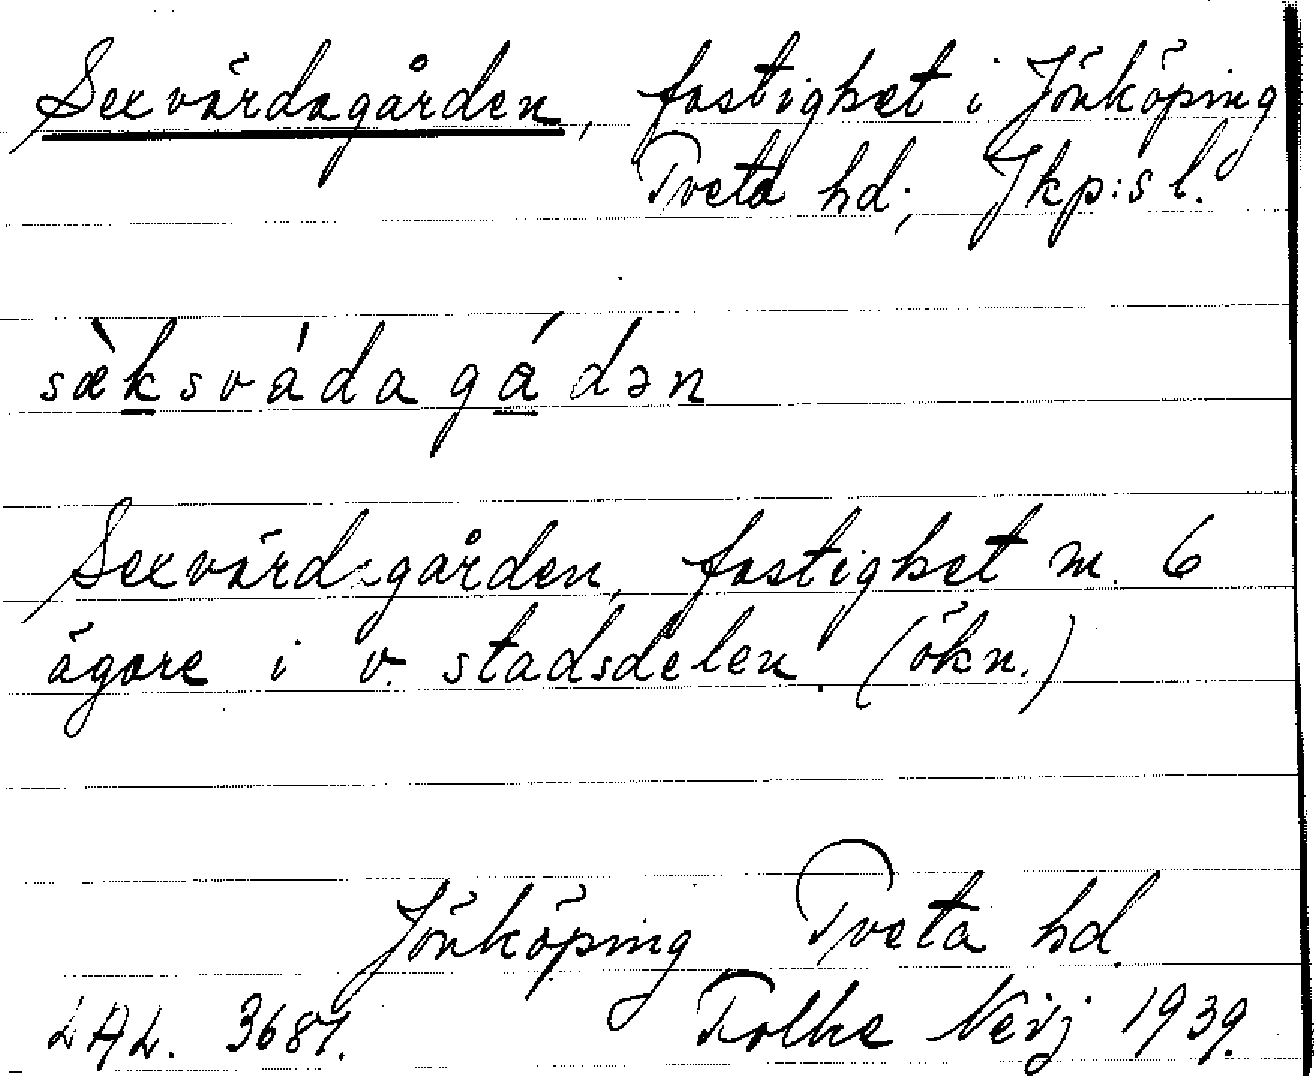 Sexvärdagården, fastighet i Jönköping
Tveta hd; Jkp:s l.
sæ̀ksvádagádən
Sexvärdagården, fastighet m. 6
ägare i v. stadsdelen. (ökn.)
Jönköping Tveta hd.
LAL. 3687. Folke Neij 1939.